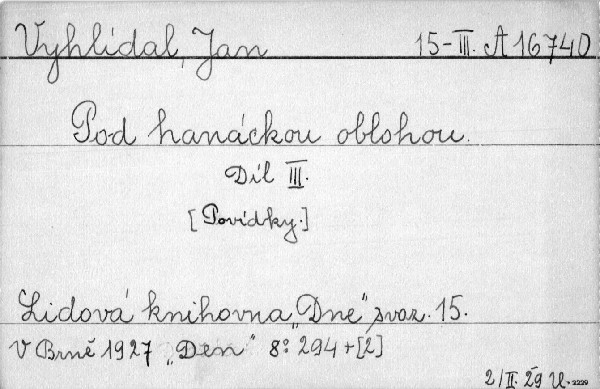 Vyhlídal, Jan 15-III. A 16740
Pod hanáckou oblohou.
Díl III.
[Povídky.]
Lidová knihovna „Dne" svaz. 15.
V Brně 1927 „Den" 8° 294+[2]
2/II. 29 U. 2229